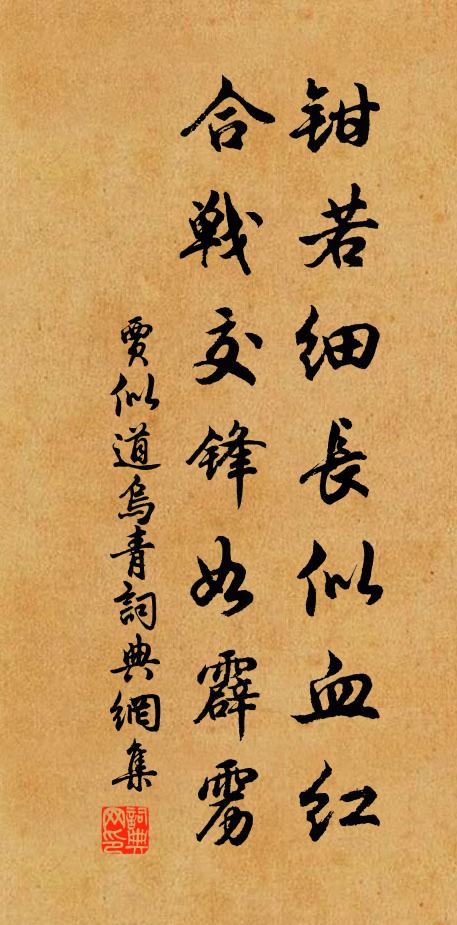 钳若细長似血红
合戰交锋如霹雳
賈似道烏青詞典網集
詞典网印